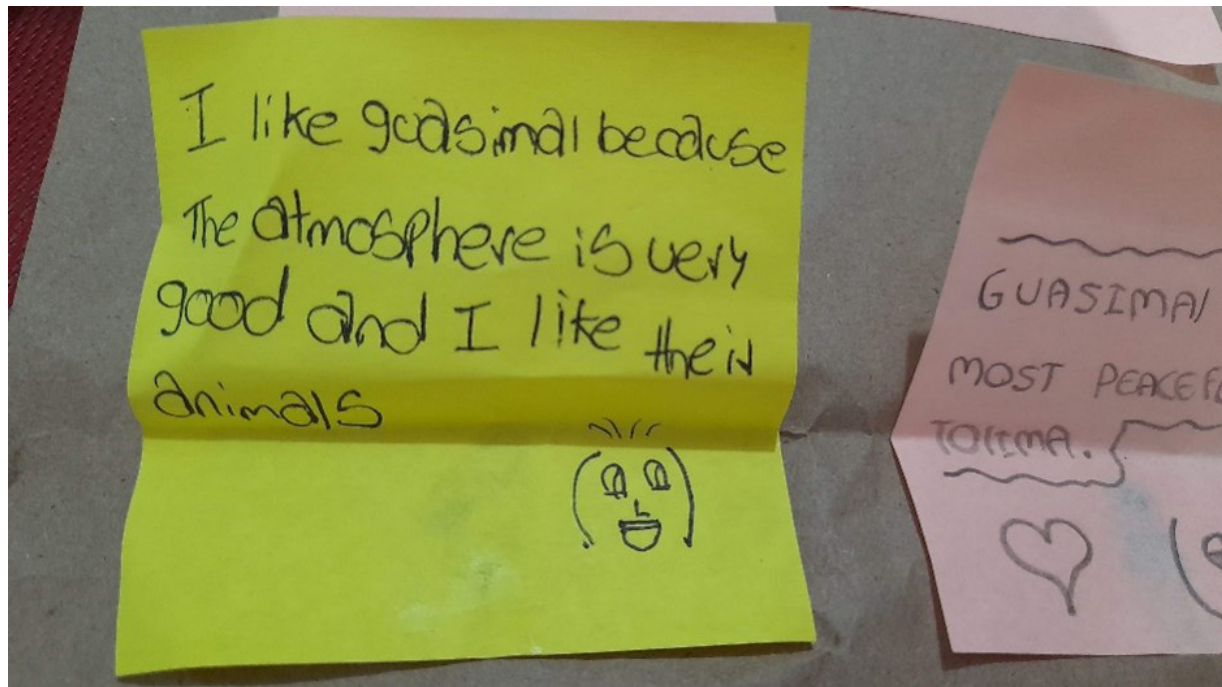 I like guasimal because
The atmosphere is very
good and I like their
animals
GUASIMAL
MOST
TOLIMA.